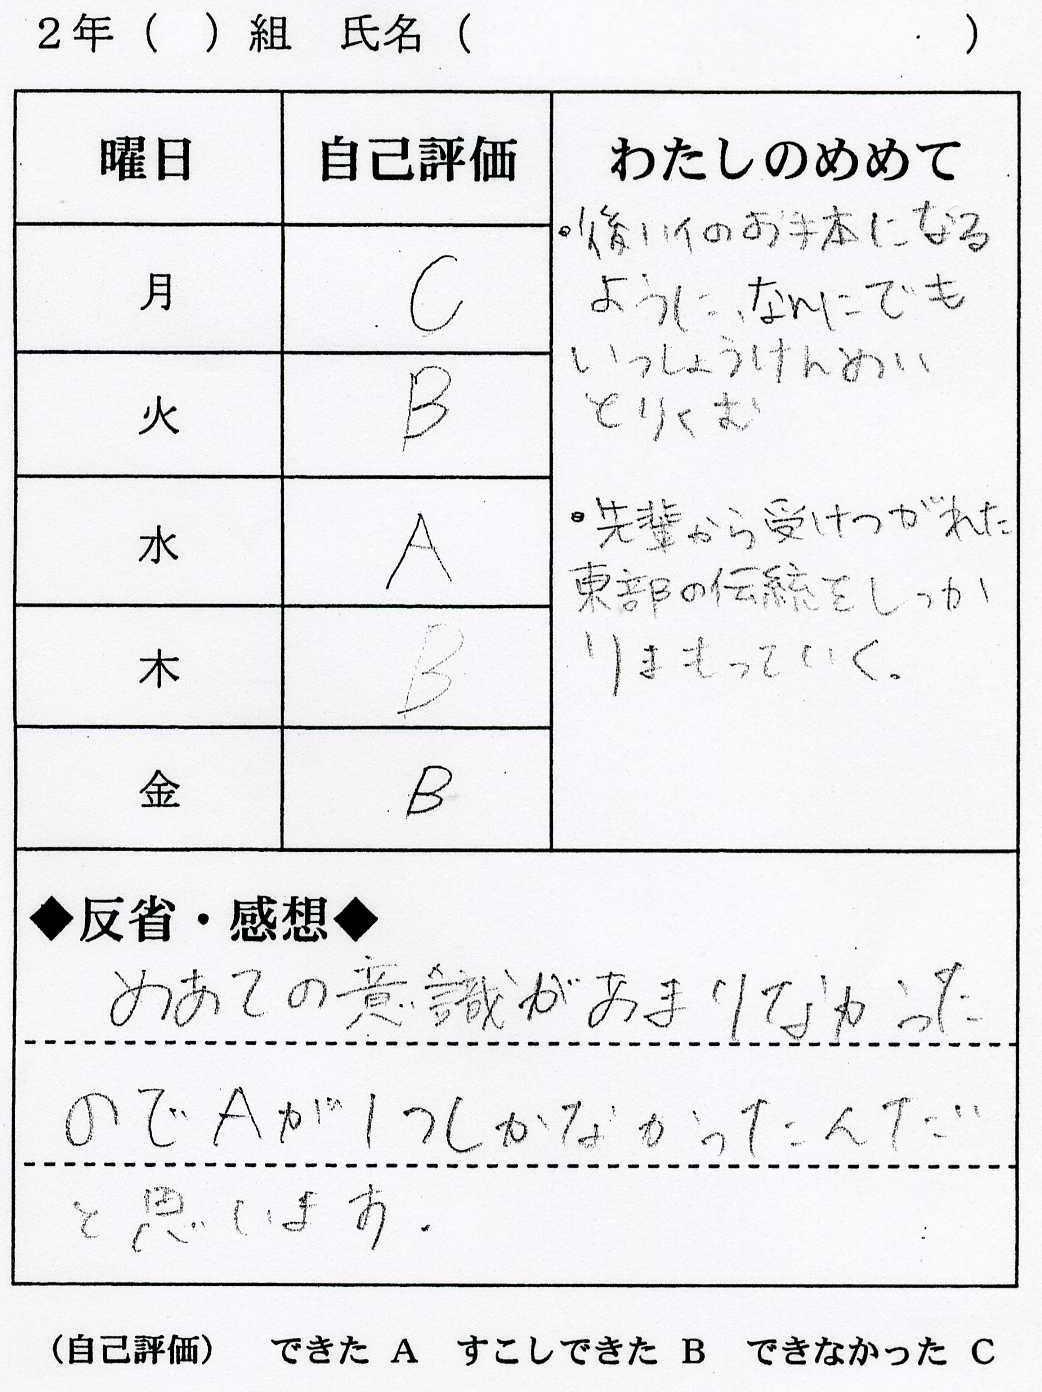 2年（　）組　氏名（　　　　　　　　　　）
曜日　自己評価　わたしのめめて
月　C
火　B
水　A
木　B
金　B
・後ハイのお手本になる
ように、なんにでも
いっしょうけんめい
とりくむ
・先輩から受けつがれた
東部の伝統をしっか
りまもっていく。
◆反省・感想◆
めあての意識があまりなかった
のでAが1つしかなかったんだ
と思います.
（自己評価）　できた A　すこしできた B　できなかった C